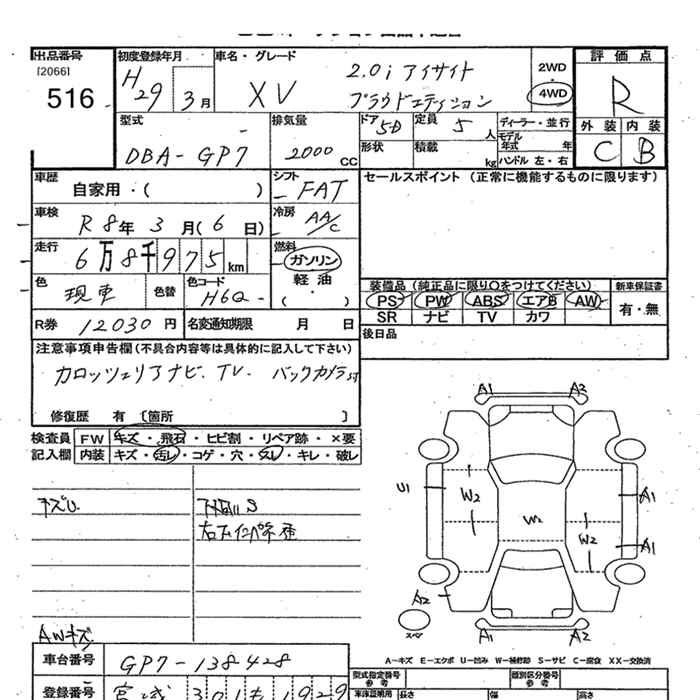 出品番号
[2066]
516
初度登録年月
H29 3月
車名・グレード
XV
2.0i アイサイト
プラウドエディション
2WD
4WD
評価点
R
外装 内装
C B
型式
DBA-GP7
排気量
2000 cc
ドア 5D
定員 5 人
ディーラー・並行
形状
積載 kg
モデル年式 年
ハンドル 左・右
車歴
自家用・( )
シフト
FAT
セールスポイント (正常に機能するものに限ります)
車検
R8年 3月(6日)
冷房
AA/C
走行
6万8千975km
燃料
ガソリン
軽油
( ・ )
色
現車
色替
色コード
H6Q-
装備品 (純正品に限り○をつけてください)
新車保証書
PS PW ABS エアB AW
有・無
SR ナビ TV カワ
R券 12030円
名変通知期限 月 日
後日品
注意事項申告欄 (不具合内容等は具体的に記入して下さい)
カロッツェリアナビ. TV. バックカメラ付
修復歴 有 〔箇所 〕
検査員 FW キズ・飛石・ヒビ割・リペア跡・×要
記入欄 内装 キズ・汚レ・コゲ・穴・スレ・キレ・破レ
キズU
下廻りS
AWキズ
A1 A2
U1
W2
W2
W2
A1
A1
A2
スペア
A1 A2
A-キズ E-エクボ U-凹み W-補修跡 S-サビ C-腐食 XX-交換済
車台番号
GP7-138428
型式指定番号 参考
類別区分番号 参考
登録番号
宮城 301 1929
車体証明用
長さ
幅
高さ